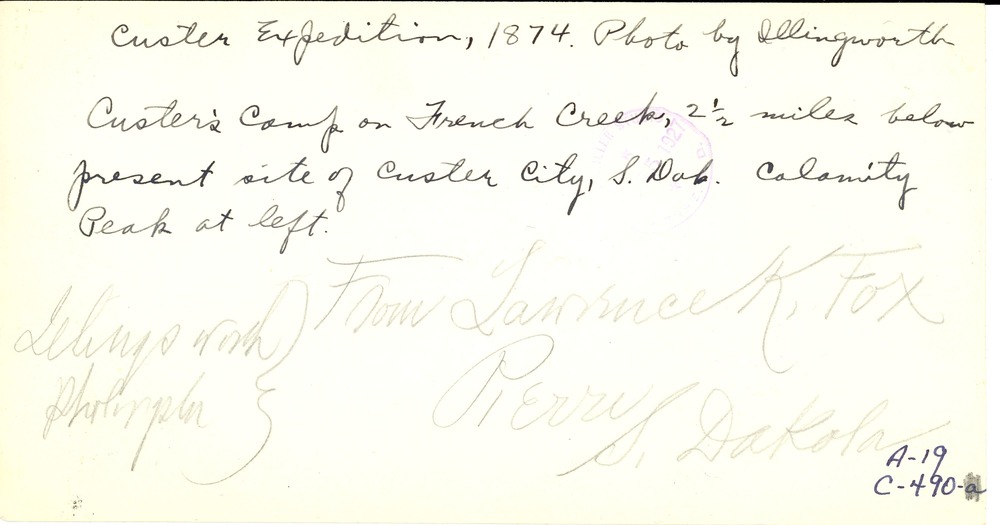 Custer Expedition, 1874. Photo by Illingworth
Custer's Camp on French Creek, 2 1/2 miles below
present site of Custer City, S. Dak. Calamity
Peak at left.
From Lawrence K. Fox
Pierre
S. Dakota
A-19
C-490-a